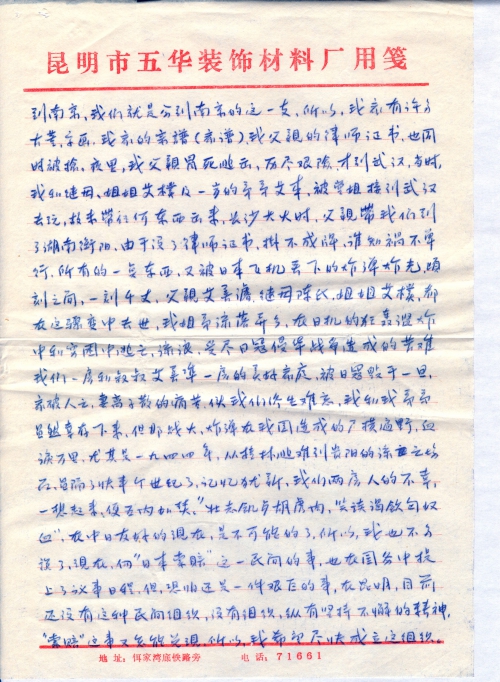 昆明市五华装饰材料厂用笺
到南京，我们就是分到南京的这一支，所以，我家有许多
古董，字画，我家的宗谱（家谱），我父亲的律师证书，也同
时被抢、夜里，我父亲冒死逃出，历尽艰险，才到武汉，当时，
我和继母、姐姐艾朴及一岁的弟弟艾，被 姐接到武汉
去玩，故未带任何东西出来，长沙大火时，父亲带我们到
了湖南衡阳，由于没了律师证书，挂不成牌，谁知祸不单
行，所有的一点东西，又被日本飞机丢下的炸弹炸光，顷
刻之间，一刻千丈，父亲艾，继母陈氏，姐姐艾朴，都
在这骤变中去世，我姐弟流落异乡，在日机的狂轰滥炸
中和穷困中逃亡，流浪，受尽日寇侵华战争造成的苦难
我们一房和叔叔艾 一房的美好家庭，被日寇毁于一旦，
家破人亡，妻离子散的痛苦，使我们终生难忘，我和我弟弟
虽然幸存下来，但那战火、炸弹在我国造成的尸横遍野，血
泪万里，尤其是一九四四年，从桂林逃难到贵阳的
虽隔了快半个世纪了，记忆犹新，我们两房人的不幸，
一想起来，便五内如焚，“壮志饥餐胡虏肉，笑谈渴饮匈奴
血”，在中日友好的现在，是不可能的了，所以，我也不多
说了，现在，向“日本索赔”这一民间的事，也在国务中提
上了议事日程，但，恐怕还是一件艰巨的事，在昆明，目前
还没有这种民间组织，没有组织，纵有坚持不懈的精神，
“索赔”这事又怎能兑现，所以，我希望尽快成立这组织。
地址：饵家湾底铁路旁 电话：71661